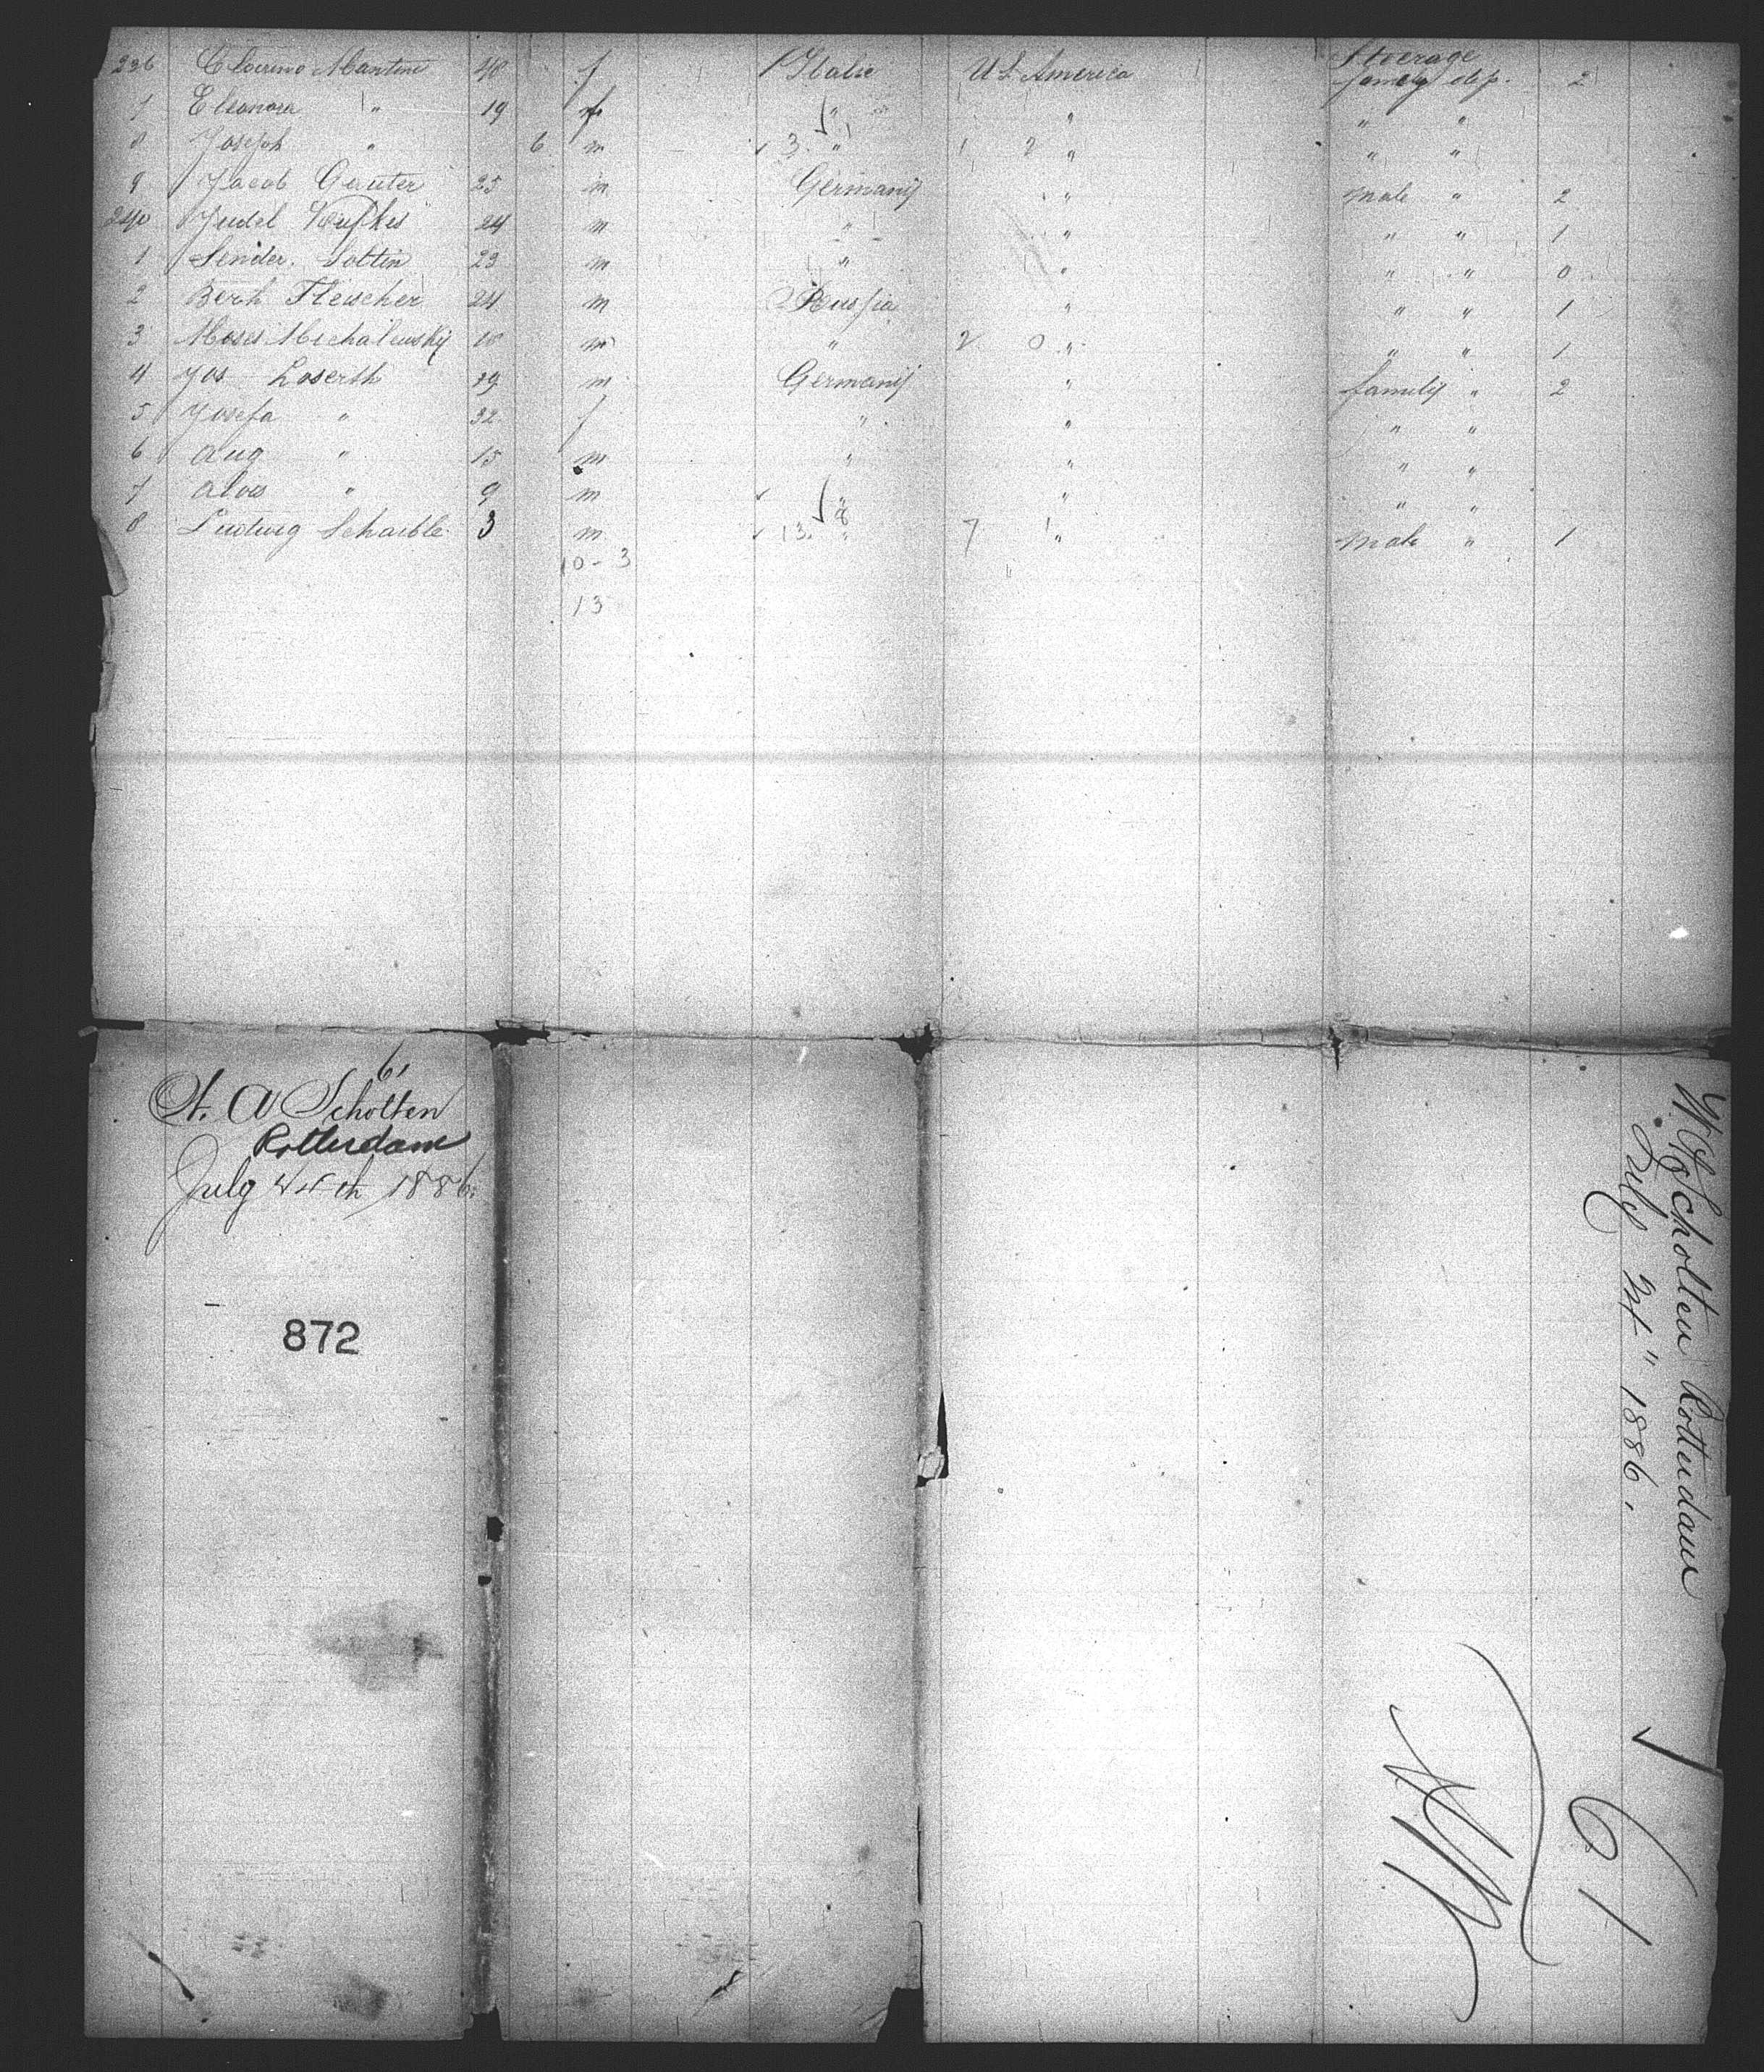 Steerage
236 Martini 40 f Italie U S America family dep. 2
7 Eleonora " 19 f " " " "
8 Joseph " 6 m 3 " 1 2 " " "
9 Jacob Gauter 25 m Germany " male " 2
240 Judel 24 m " " " " 1
1 Sender. 23 m " " " " 0
2 Berh Fleischer 24 m Russia " " " 1
3 Moses Michalewskÿ 18 m " 2 0 " " " 1
4 Jos Loserth 39 m Germany " family " 2
5 Josefa " 32 f " " " "
6 Aug " 15 m " " " "
7 Alois " 9 m " " " "
8 Ludwig Schaible 3 m 8 13. " 7 1 " male " 1
10-3
13
61
W. A Scholten
Rotterdam
July 24th 1886.
872
W A Scholten Rotterdam
July 24" 1886.
61